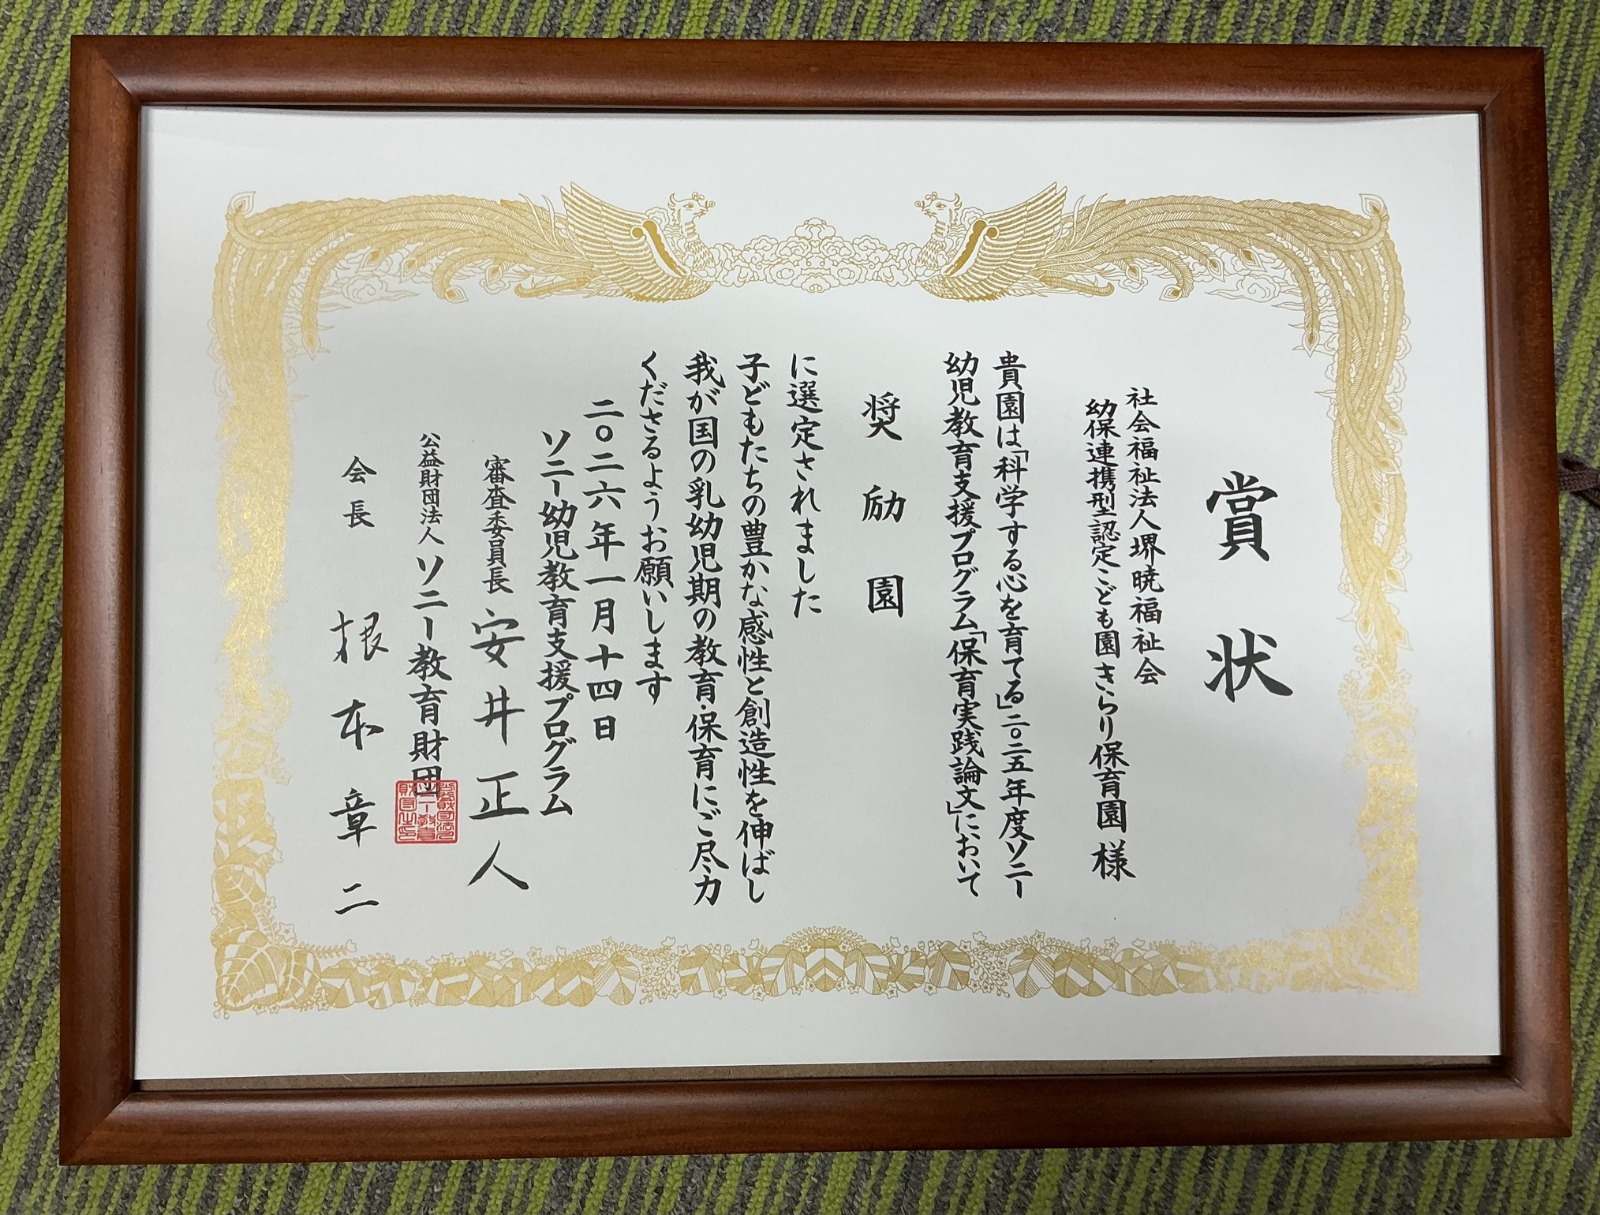 賞状
社会福祉法人堺暁福祉会
幼保連携型認定こども園きらり保育園 様
貴園は「科学する心を育てる」二〇二五年度ソニー
幼児教育支援プログラム「保育実践論文」において
奨励園
に選定されました
子どもたちの豊かな感性と創造性を伸ばし
我が国の乳幼児期の教育・保育にご尽力
くださるようお願いします
二〇二六年一月十四日
ソニー幼児教育支援プログラム
審査委員長 安井正人
公益財団法人 ソニー教育財団
会長 根本章二